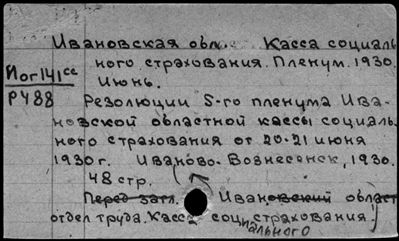 Ивановская обл. Касса социаль
ного страхования. Пленум. 1930.
Июнь.
Иог141сс
Р488
Резолюции 5-го пленума Ива-
новской областной кассы социаль-
ного страхования от 20-21 июня
1930 г. Иваново-Вознесенск, 1930.
48 стр.
Перед загл. Ивановский област
отдел труда. Касса социального страхования.